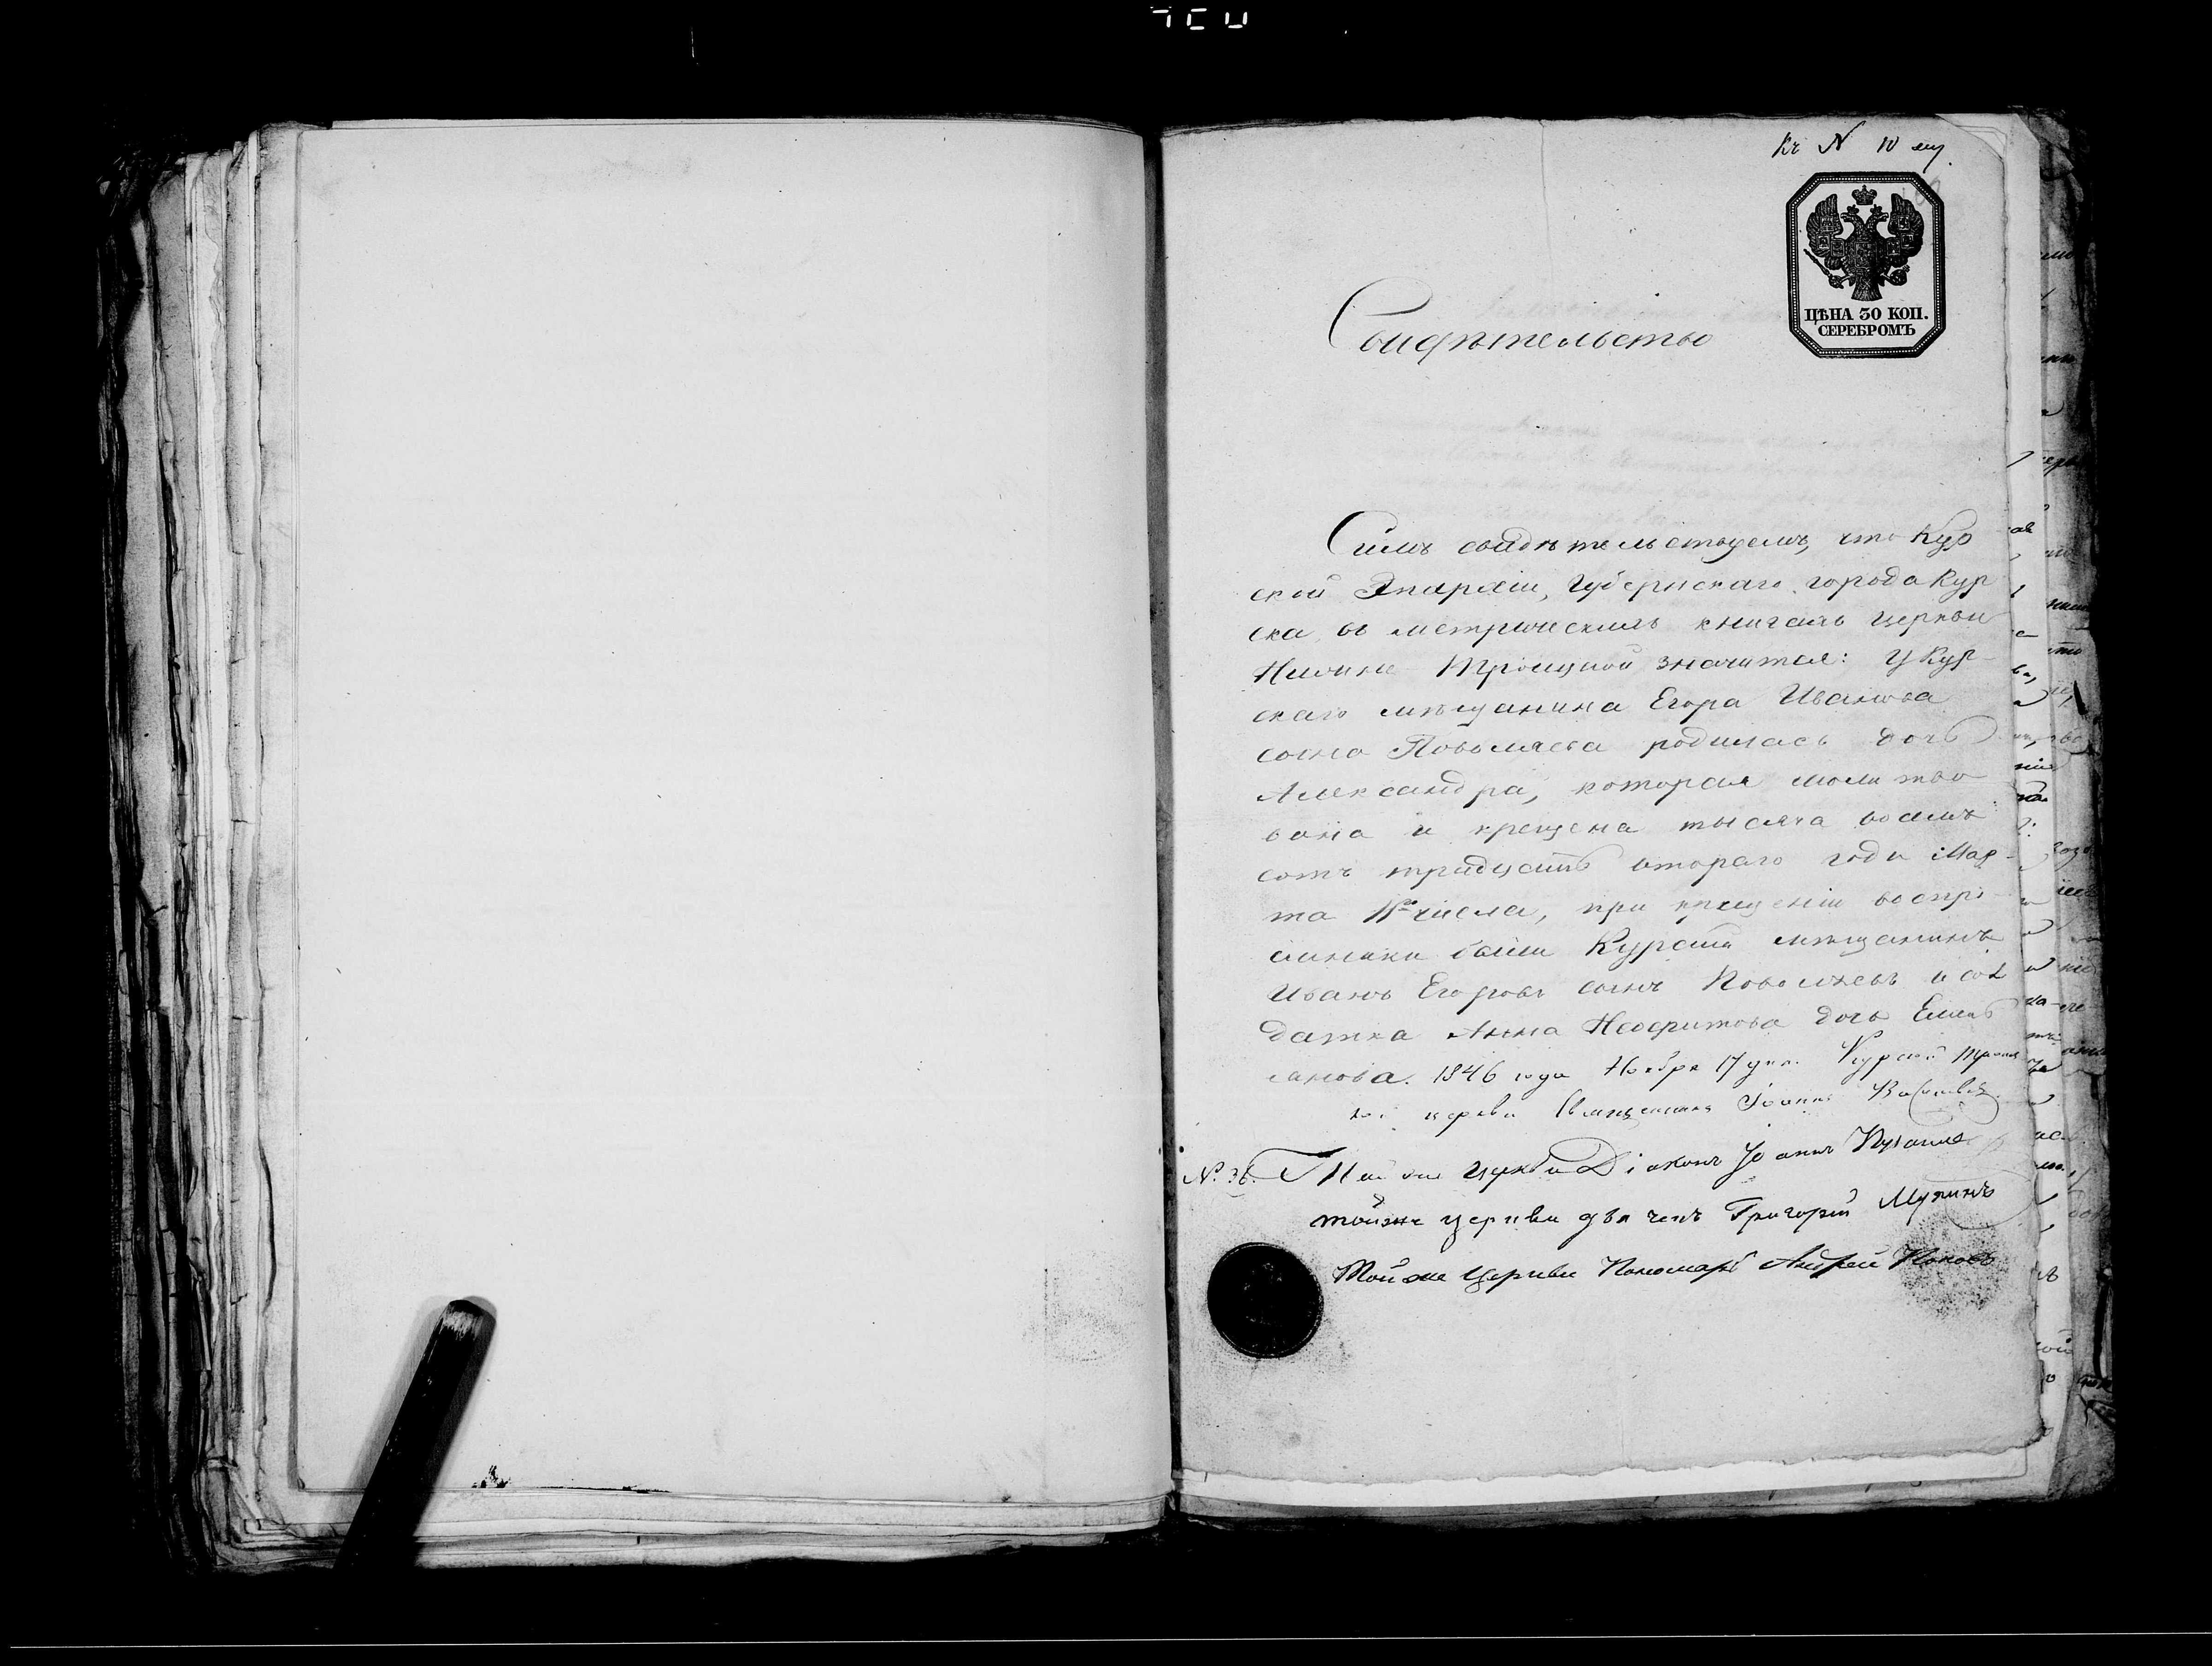 Къ N 10 му
ЦѢНА 30 КОП.
СЕРЕБРОМЪ
Свидѣтельство
Симъ свидѣтельствуемъ, что Кур
ской Епархіи, губернскаго города Кур
ска, въ метрическихъ книгахъ церкви
Нижне Троицкой значится: у Кур-
скаго мѣщанина Егора Иванова
сына Поволяева родилась дочь
Александра, которая молитво
вана и крещена тысяча восемь
сотъ тридцать втораго года Мар-
та числа, при крещеніи воспрі-
емники были Курской мѣщанинъ
Иванъ Егоровъ сынъ Поволяевъ и сол
датка Анна Неофитова дочь Емель
янова. 1846 года Ноября 17 дня. Курской Троиц
кой церкви Священникъ Іоаннъ
№. 36. Той же церкви Діаконъ Іоаннъ
тойже церкви дьячекъ Григорій
Той же Церкви Пономарь Андрей Поповъ